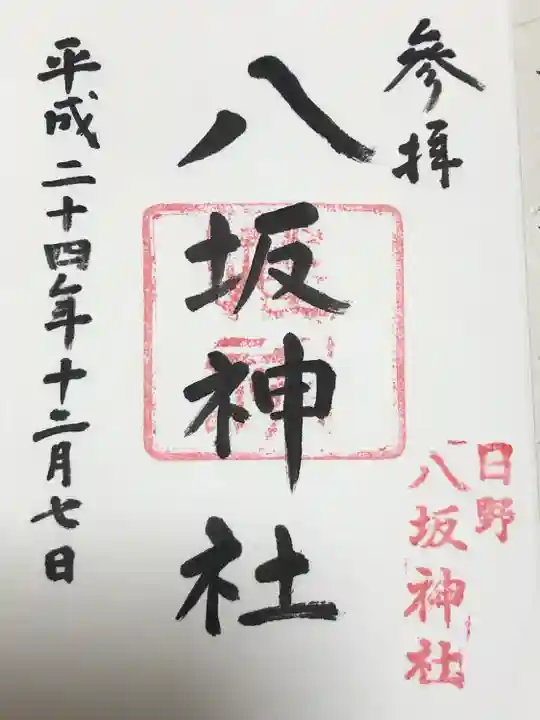 參拝
八坂神社
平成二十四年十二月七日
日野
八坂神社